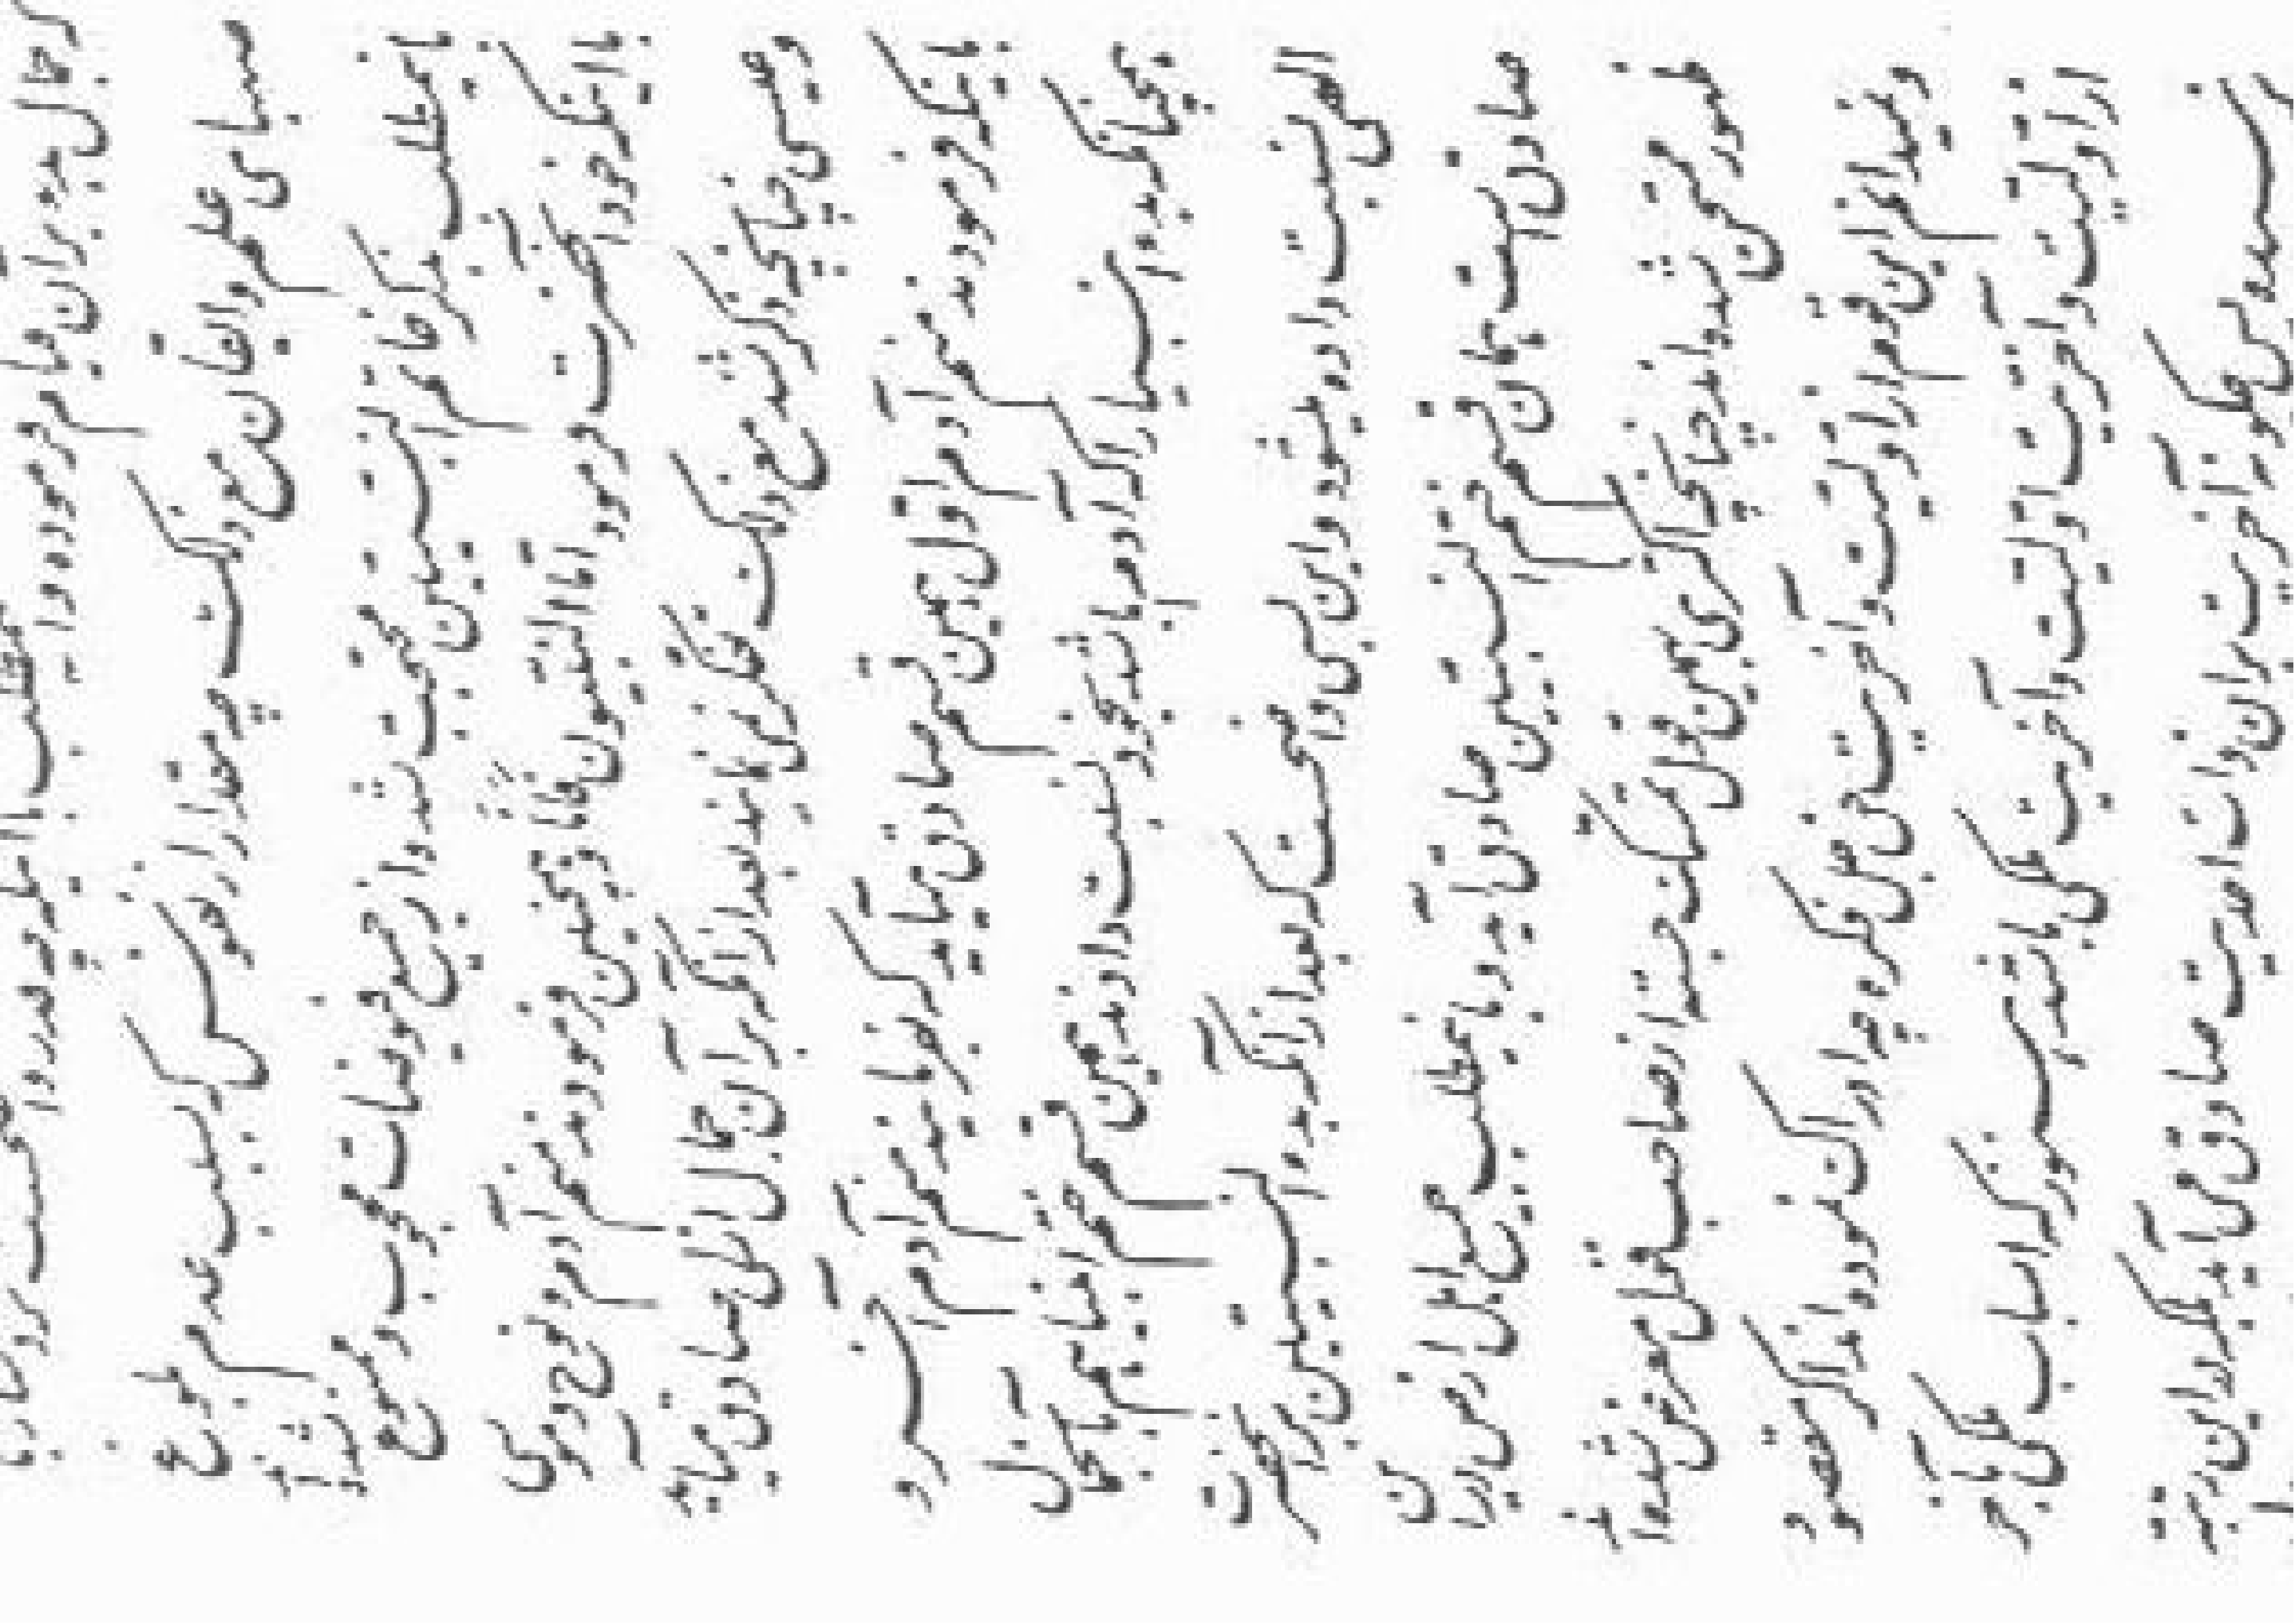 صبای علم و ایقان مع ذلک چه مقدار از نفوس که بسبب عدم بلوغ
باینمطلب بذکر خاتم النبیین محتجب شده از جمیع فیوضات محجوب و ممنوع شده‌اند
با اینکه خود آنحضرت فرمود اما النبیون فانا و همچنین فرمودند منم آدم و نوح و موسی
و عیسی چنانچه ذکر شد مع ذلک تفکر نمی‌نمایند بعد از آنکه بر آن جمال ازلی صادق میآید
باینکه فرمودند منم آدم اول همین قسم صادق میآید که بفرمایند منم آدم آخر و
همچنانکه بدء انبیا را که آدم باشد بخود نسبت دادند همین قسم ختم انبیا هم بآنجمال
الهی نسبت داده میشود و این بسی واضحست که بعد از آنکه بدء النبیین بر آنحضرت
صادق است همان قسم ختم النبیین صادق آید و باینمطلب جمیع اهل ارض در این
ظهور ممتحن شده‌اند چنانچه اکثری بهمین قول تمسک جسته از صاحب قول معرض شده‌اند
و نمیدانم این قوم از اولیت و آخریت حق جل ذکره چه ادراک نموده‌اند اگر مقصود
از اولیت و آخریت اولیت و آخریت ملکی باشد هنوز که اسباب ملکی بآخر
نرسیده پس چگونه آخریت بر آن ذات احدیت صادق میآید بلکه در این رتبه